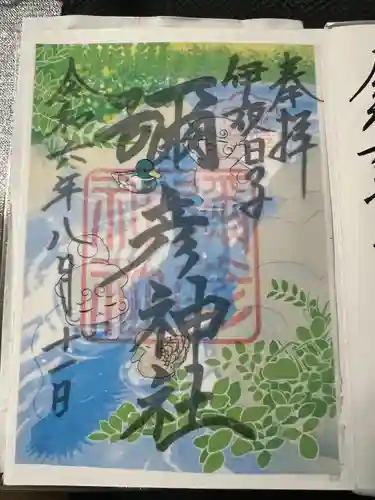 奉拝
伊夜日子
彌彦神社
令和六年八月十一日